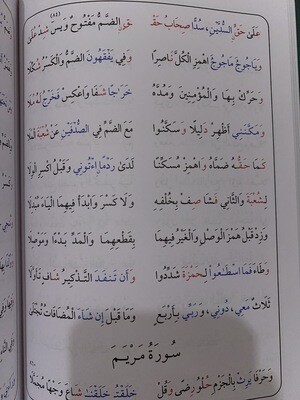 (٨٤)
عَلَىٰ حَقٍّ السُّدَّيْنِ، سُدًّا صِحَابُ حَقْـ ـقٍ الضَّمُّ مَفْتُوحٌ وَيَسَ شِدْ عُلَا
وَيَاجُوجَ مَاجُوجَ اهْمِزِ الْكُلَّ نَاصِرًا وَفِي يَفْقَهُونَ الضَّمُّ وَالْكَسْرُ شُكِّلَا
وَحَرِّكْ بِهَا وَالْمُؤْمِنِينَ وَمُدَّهُ خَرَاجًا شَفَا وَاعْكِسْ فَخَرْجُ لَهُ مُلَا
وَمَكَّنَنِي أَظْهِرْ دَلِيلًا وَسَكَّنُوا مَعَ الضَّمِّ فِي الصُّدْفَيْنِ عَنْ شُعْبَةَ الْمَلَا
كَمَا حَقُّهُ ضَمَّاهُ وَاهْمِزْ مُسَكِّنًا لَدَىٰ رَدْمًا ائْتُونِي وَقَبْلُ اكْسِرِ الْوِلَا
لِشُعْبَةَ وَالثَّانِي فَشَا صِفْ بِخُلْفِهِ وَلَا كَسْرَ وَابْدَأْ فِيهِمَا الْيَاءَ مُبْدِلَا
وَزِدْ قَبْلُ هَمْزَ الْوَصْلِ وَالْغَيْرُ فِيهِمَا بِقَطْعِهِمَا وَالْمَدِّ بَدْءًا وَمَوْصِلَا
وَطَاءَ فَمَا اسْطَاعُوا لِحَمْزَةَ شَدَّدُوا وَأَنْ تَنْفَدَ التَّذْكِيرُ شَافٍ تَأَوَّلَا
ثَلَاثٌ مَعِي، دُونِي، وَرَبِّي بِأَرْبَعٍ وَمَا قَبْلَ إِنْ شَاءَ الْمُضَافَاتُ تُجْتَلَىٰ
سُورَةُ مَرْيَمَ
وَحَرْفَا يَرِثْ بِالْجَزْمِ حُلْوُ رِضًى وَقُلْ خَلَقْتُ خَلَقْنَا شَاعَ وَجْهًا مُجَمَّلَا